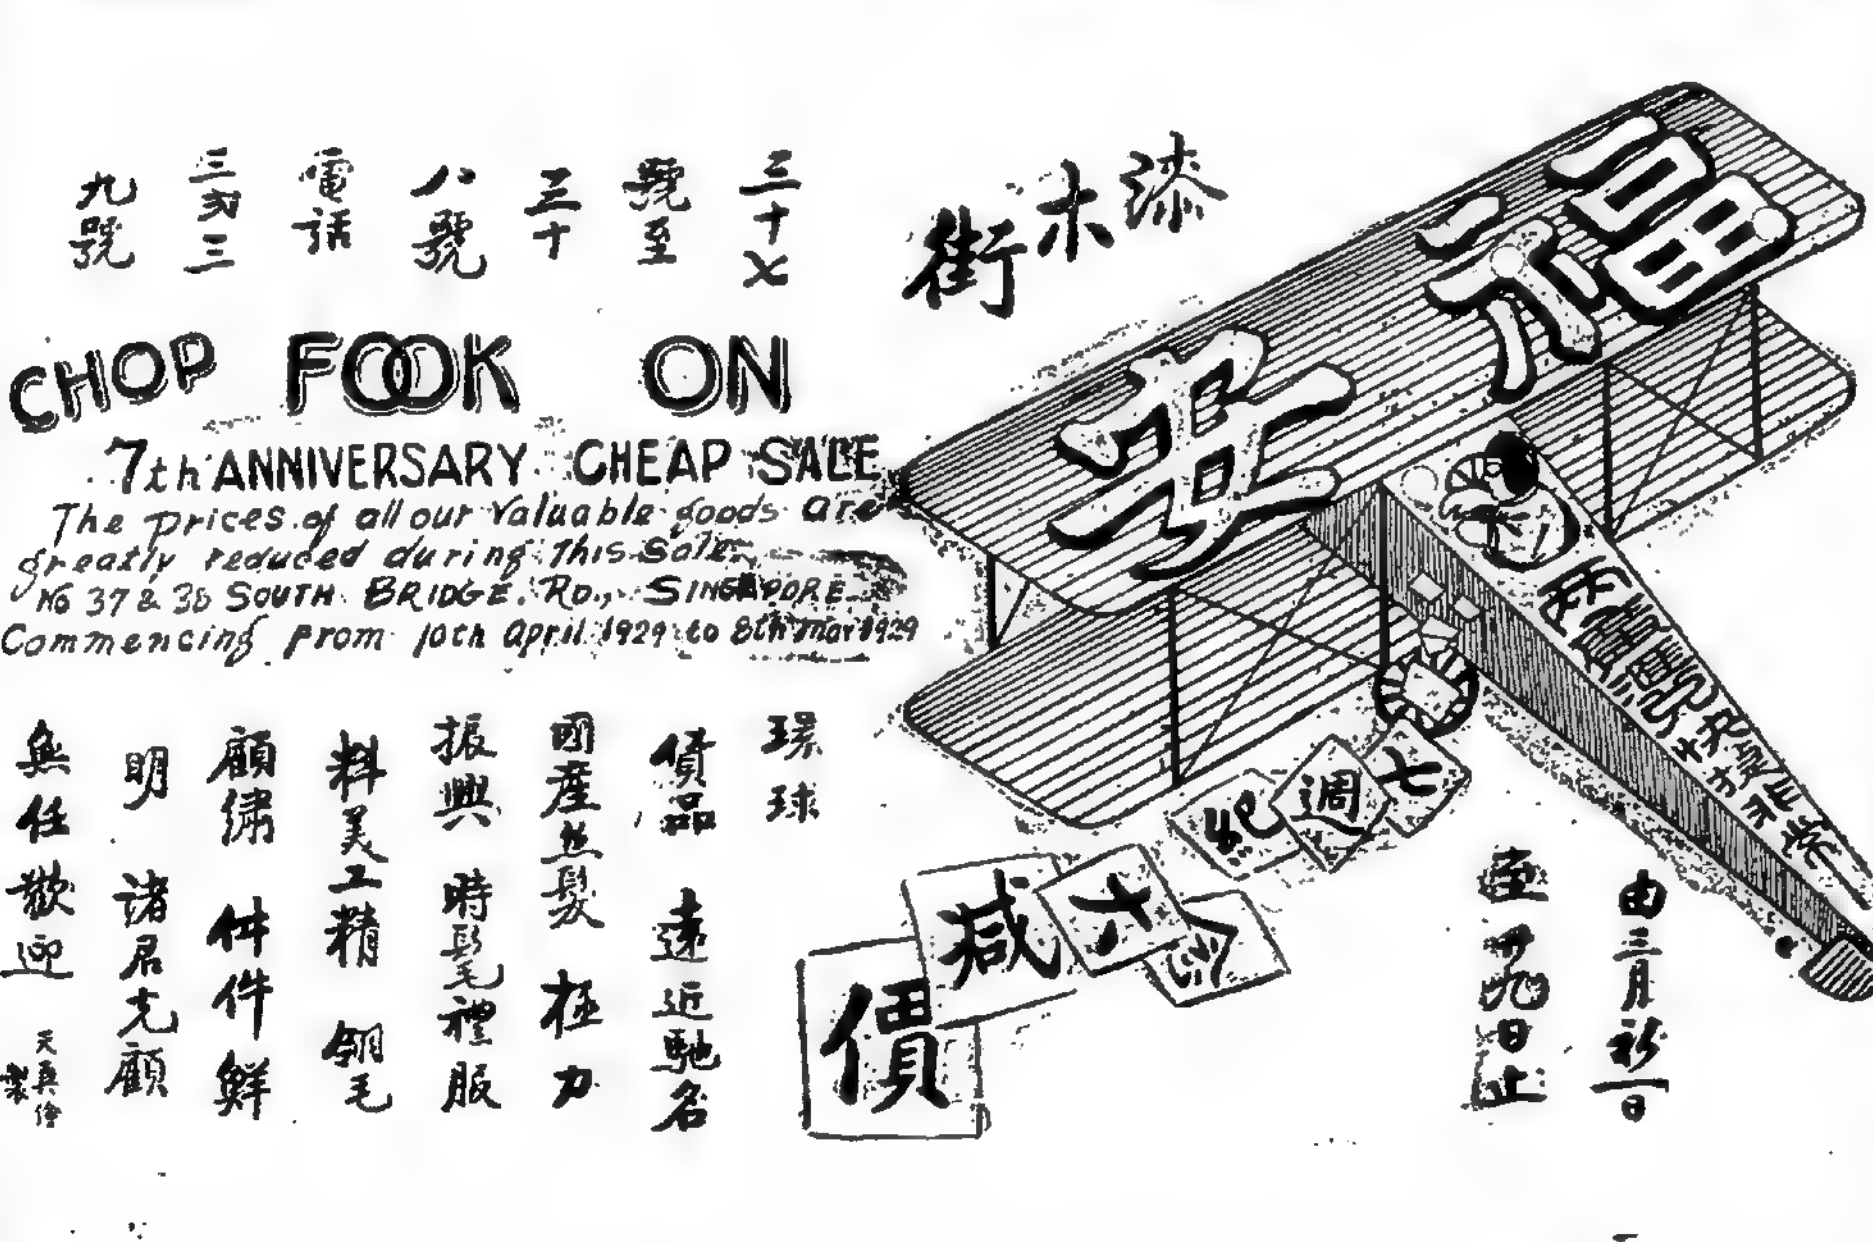 福安
漆木街
三十七
號至
三十
八號
電話
三九三
九號
CHOP FOOK ON
7th ANNIVERSARY CHEAP SALE
The prices of all our Valuable goods are
greatly reduced during This Sale
No 37 & 38 SOUTH BRIDGE. RD., SINGAPORE
Commencing From 10th April 1929 to 8th May 1929
七週紀
六減價
由三月初一日
止
環球
貨品 遠近馳名
國產絲髮 極力
振興 時髦禮服
料美工精 翎毛
顧繡 件件鮮
明 諸君光顧
無任歡迎